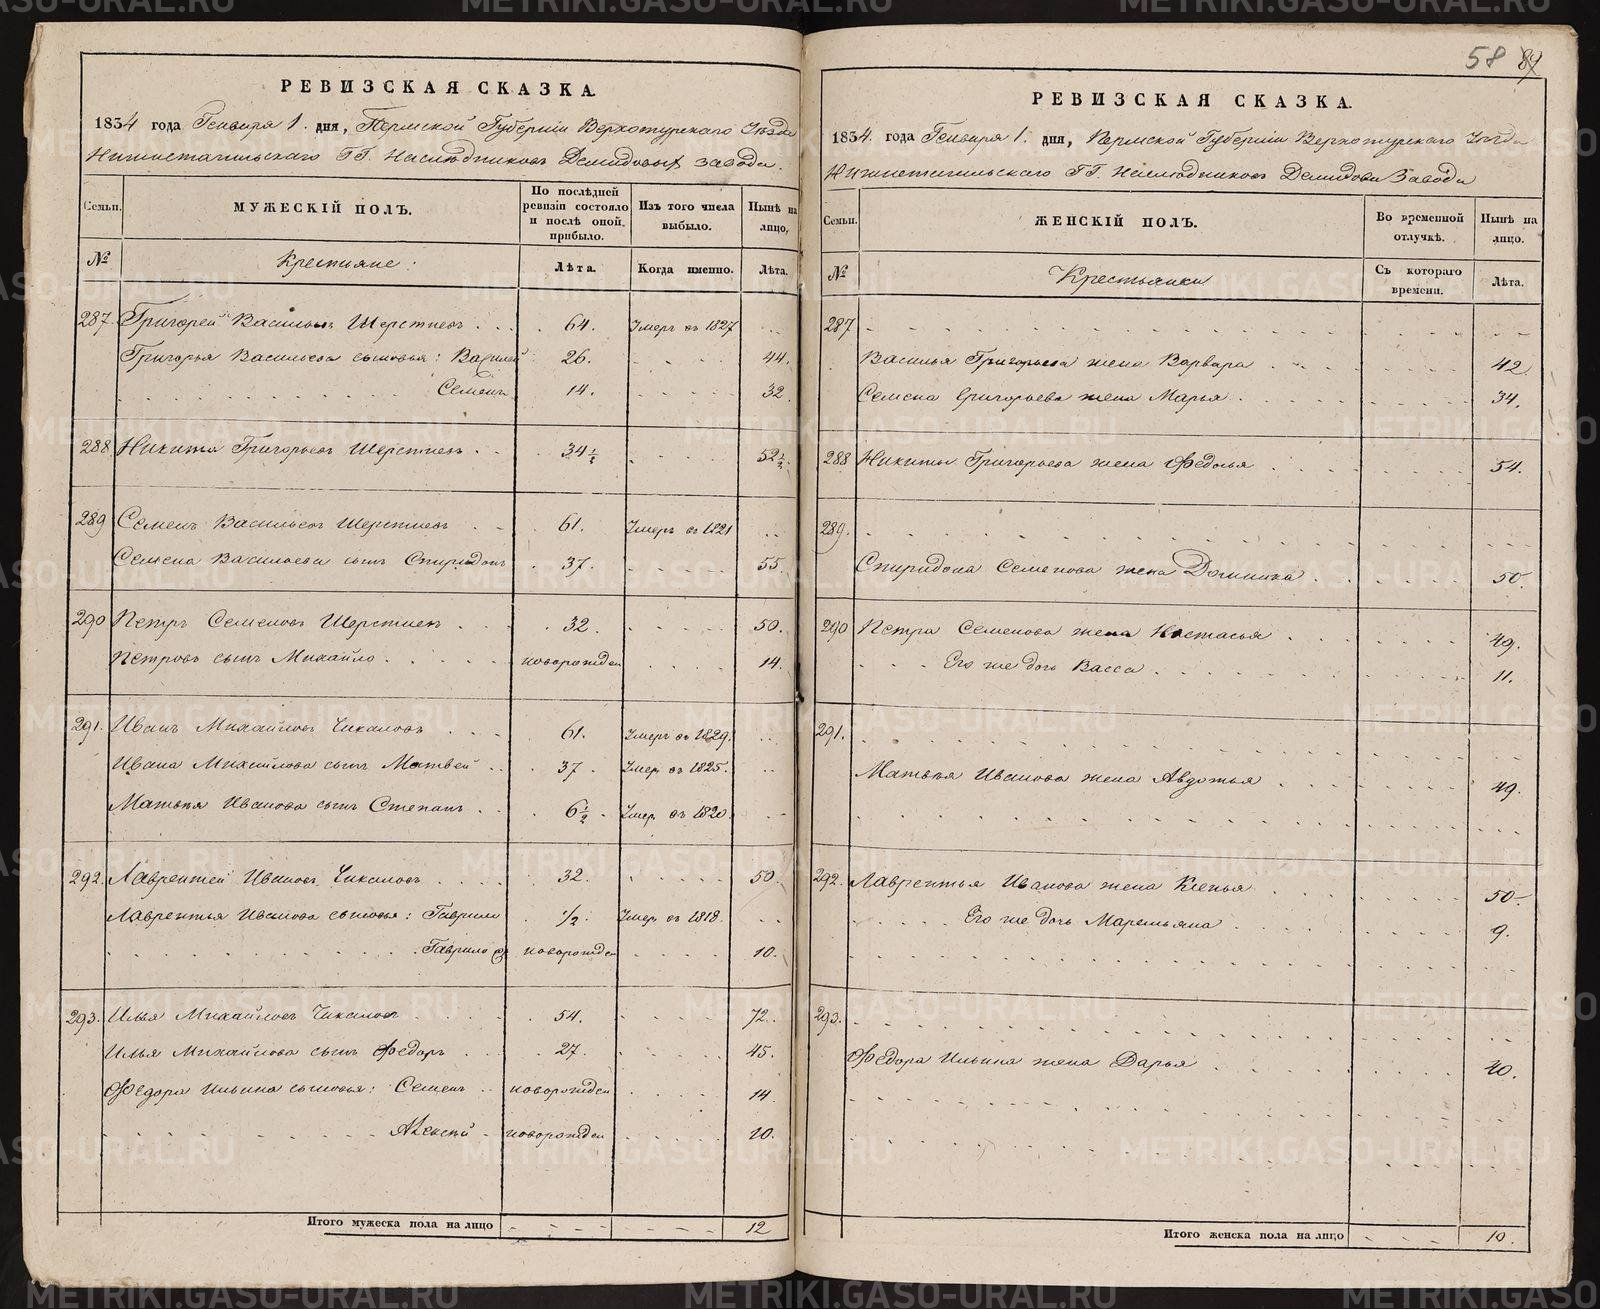 РЕВИЗСКАЯ СКАЗКА.
1834 года Генваря 1. дня, Пермской Губерніи Верхотурскаго Уѣзда
Нижнетагильскаго ГГ. Наслѣдниковъ Демидовых завода.
Семьи.
МУЖЕСКІЙ ПОЛЪ.
По послѣдней ревизіи состояло и послѣ оной прибыло.
Изъ того числа выбыло.
Нынѣ на лицо,
№
Крестьяне:
Лѣта.
Когда именно.
Лѣта.
287. Григорей Васильевъ Шерстневъ . . . 64. Умеръ въ 1827 . .
Григорья Васильева сыновья: Василей 26. . . . . 44.
Семенъ 14. . . . . 32.
288. Никита Григорьевъ Шерстневъ . . 34½ . . . . 52½.
289 Семенъ Васильевъ Шерстневъ . . 61. Умеръ въ 1821 . .
Семена Васильева сынъ Спиридонъ 37. . . . . 55.
290 Петръ Семеновъ Шерстневъ . . 32. . . . . 50.
Петровъ сынъ Михайло . . . . новорожден . . . . 14.
291. Иванъ Михайловъ Чикаловъ . . . 61. Умеръ въ 1829. . .
Ивана Михайлова сынъ Матвей . . 37. Умер. въ 1825. . .
Матвѣя Иванова сынъ Степанъ . . 6½. Умер. въ 1820. . .
292. Лаврентей Ивановъ Чикаловъ . . . . 32. . . . . 50.
Лаврентья Иванова сыновья: Гаврило ½. Умер. въ 1818. . .
Гаврило новорожден . . . . 10.
293. Илья Михайловъ Чикаловъ . . . . 54. . . . . 72.
Илья Михайлова сынъ Федоръ . . . 27. . . . . 45.
Федора Ильина сыновья: Семенъ . . новорожден . . . . 14.
Алексѣй . новорожден . . . . 10.
Итого мужеска пола на лицо . . . . 12
58 87
РЕВИЗСКАЯ СКАЗКА.
1834. года Генваря 1. дня, Пермской Губерніи Верхотурскаго Уѣзда
Нижнетагильскаго ГГ. Наслѣдниковъ Демидовы Завода
Семьи.
ЖЕНСКІЙ ПОЛЪ.
Во временной отлучкѣ.
Нынѣ на лицо.
№
Крестьянки
Съ котораго времени.
Лѣта.
287
Василья Григорьева жена Варвара . . . . 42.
Семена Григорьева жена Марья . . . . 34.
288 Никиты Григорьева жена Федосья . . . . 54.
289.
Спиридона Семенова жена Домника . . . . 50.
290 Петра Семенова жена Настасья . . . . 49.
Его же дочь Васса . . . . 11.
291.
Матвѣя Иванова жена Авдотья . . . . 49.
292. Лаврентья Иванова жена Ксенья . . . . 50.
Его же дочь Маремьяна . . . . 9.
293.
Федора Ильина жена Дарья . . . . 40.
Итого женска пола на лицо . . . . 10.
METRIKI.GASO-URAL.RU